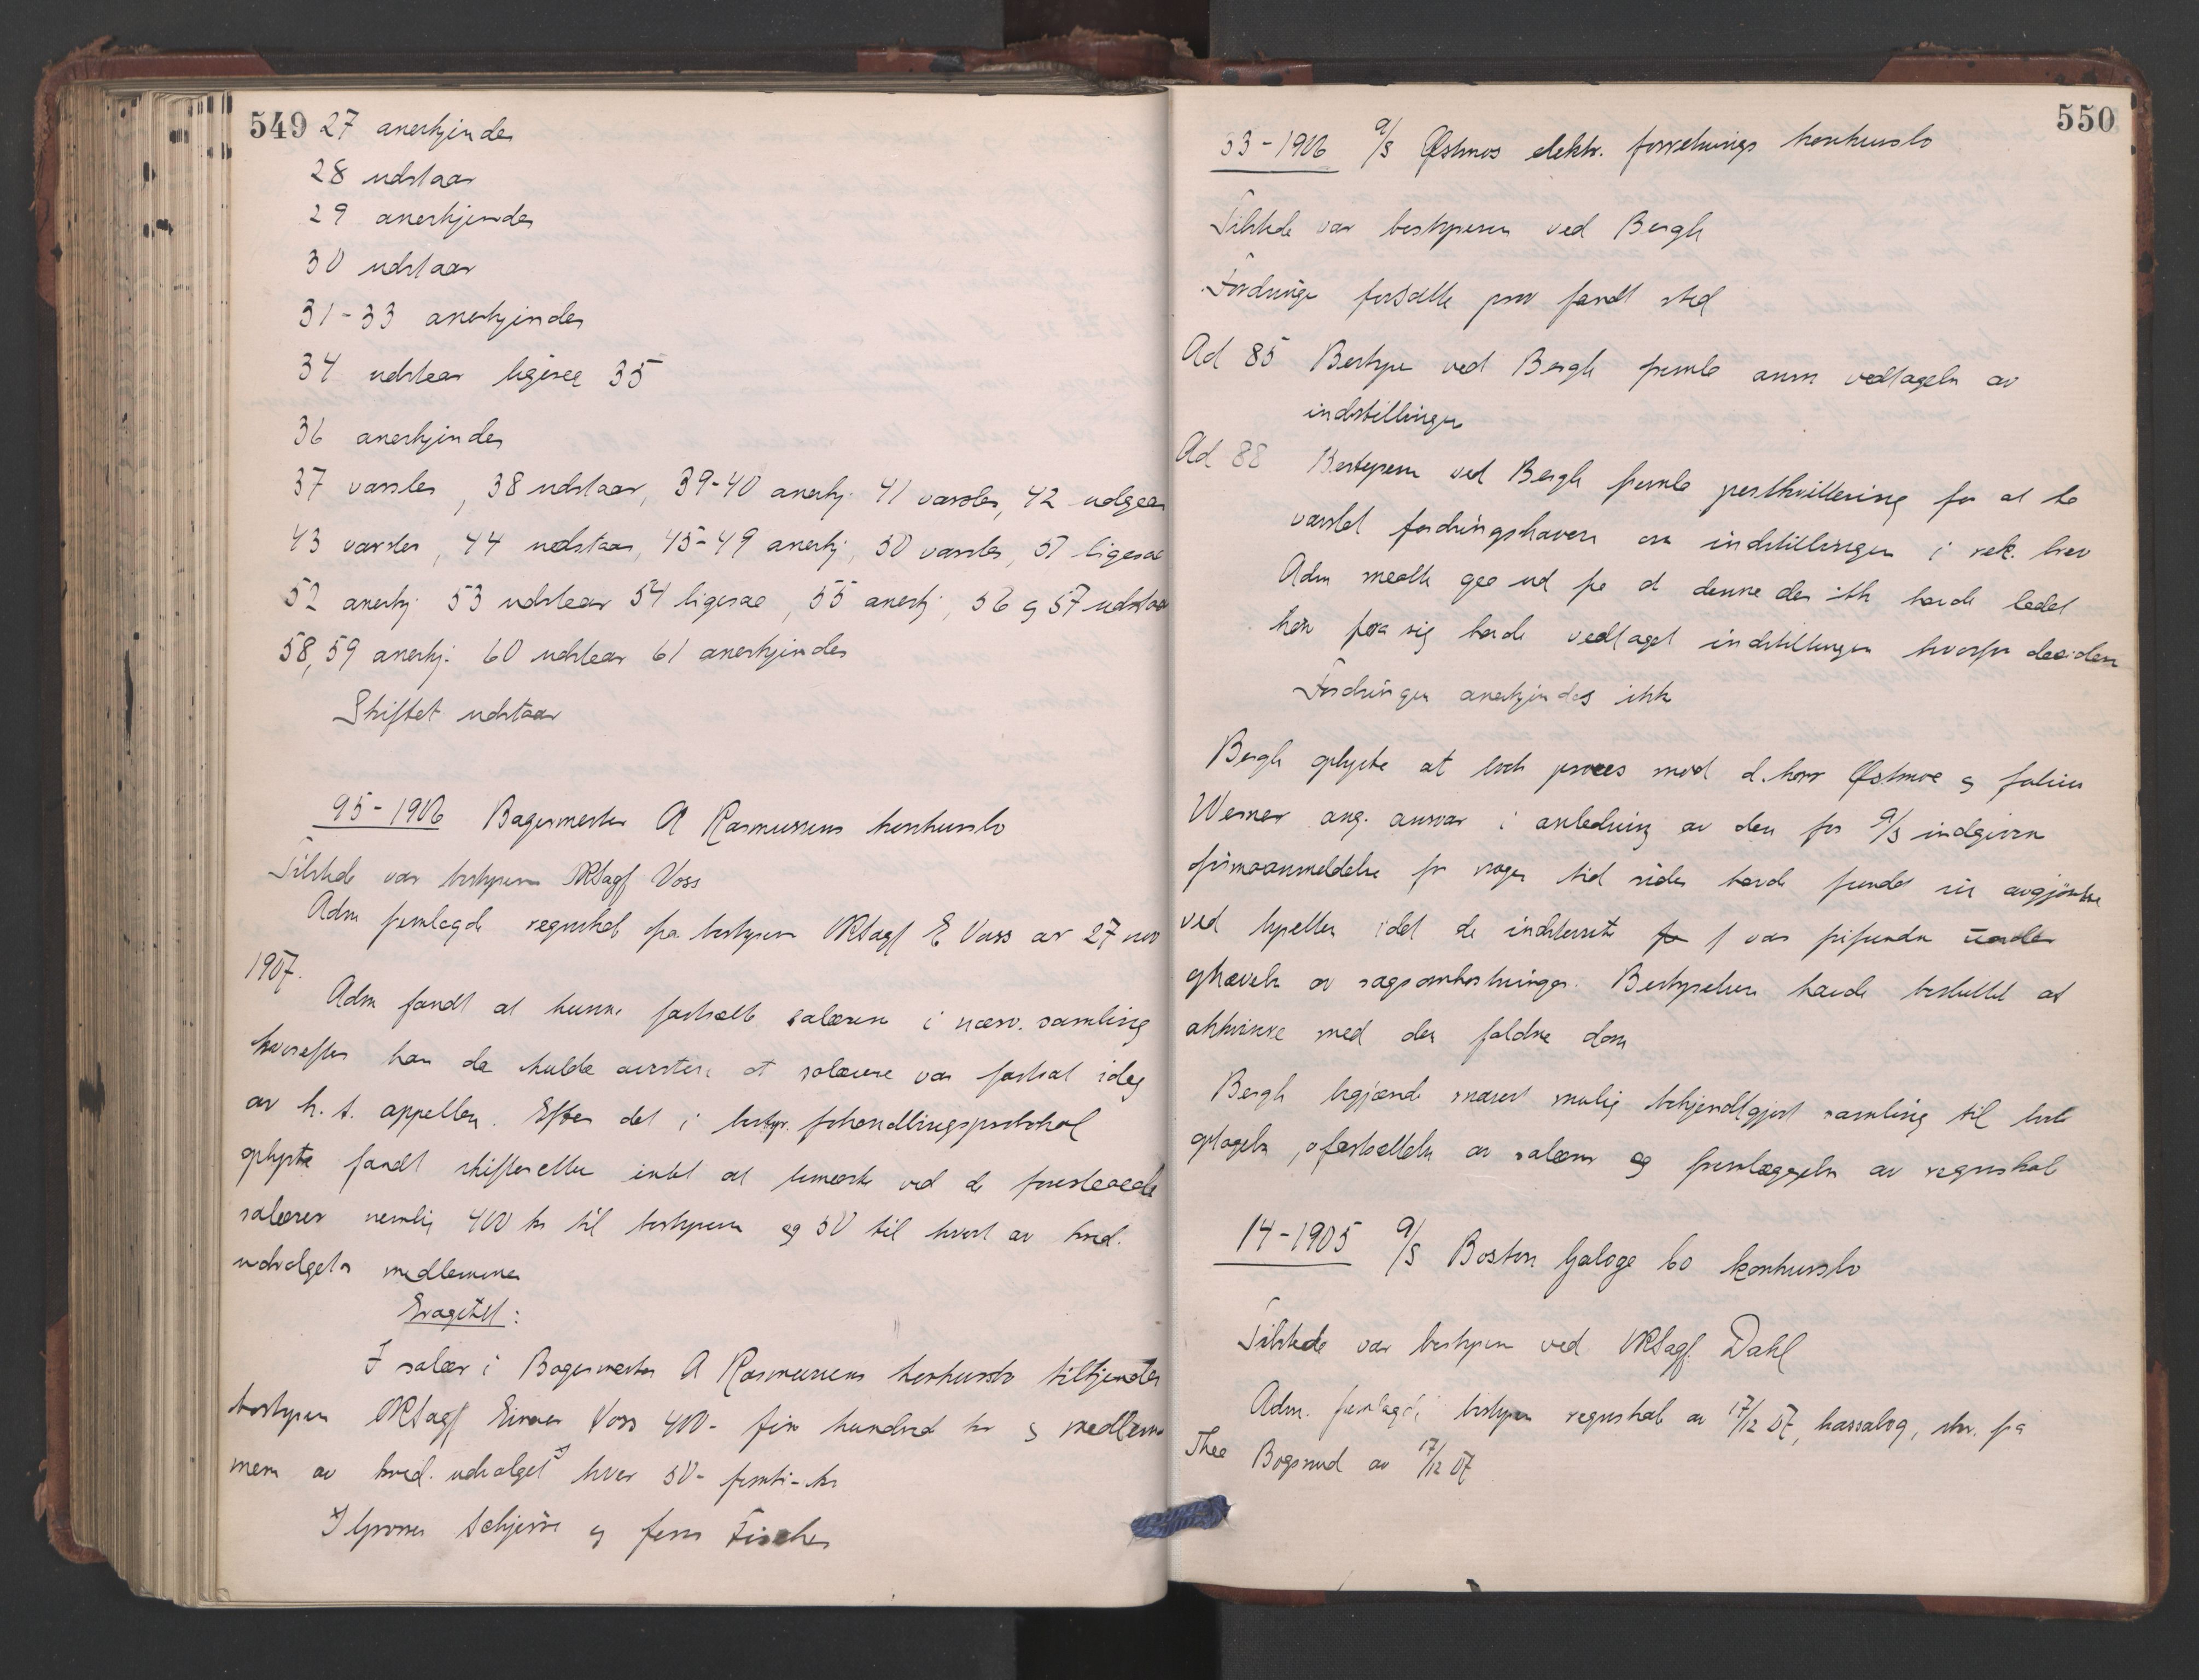 549
27 anerkjendes
28 udstaar
29 anerkjendes
30 udstaar
31-33 anerkjendes
34 udstaar ligesaa 35
36 anerkjendes
37 varsles, 38 udstaar, 39-40 anerkj. 41 varsles, 42 udgaar
43 varsles, 44 udstaar, 45-49 anerkj, 50 varsles, 51 ligesaa
52 anerkj. 53 udstaar 54 ligesaa, 55 anerkj, 56 og 57 udstaar
58, 59 anerkj. 60 udstaar 61 anerkjendes
Skiftet udstaar
95-1906 Bagermester A Rasmussens konkursbo
Tilstede var bestyreren ORSagf Voss
Adm fremlagde regnskab fra bestyreren ORSagf E Voss av 27 nov
1907.
Adm fandt at kunne fastsætte salærene i nærv. samling
hvorefter han da skulde avertere at salærene var fastsat idag
av h. t. appellen. Efter det i bestyr. forhandlingsprotokol
oplyste fandt skifteretten intet at bemærke ved de foreslaaede
salærer nemlig 400 kr til bestyreren og 50 til hvert av kred.
udvalgets medlemmer
Eragtet:
I salær i Bagermester A Rasmussens konkursbo tilkjendes
bestyren ORSagf Einar Voss 400- fire hundred kr og medlem
mem av kred. udvalget x) hver 50- femti- kr
x) Grosser Schjerve og Jens Fischer
550
53-1906 A/S Østmos elektr. forretnings konkursbo
Tilstede var bestyreren ved Bergh
Fordringe forsatte prøv fandt sted
Ad 85 Bestyre ved Bergh fremla anm vedtagelse av
indstillingen
Ad 88 Bestyreren ved Bergh fremla postkvittering for at ha
varslet fordringshaveren om indstillingen i rek. brev
Adm maatte gaa ud fra at denne da ikke havde ladet
høre fra sig havde vedtaget indstillingen hvorfor decideres
Fordringen anerkjendes ikke
Bergh oplyste at boets proces mod d.herr Østmoe og
Werner ang. ansvar i anledning av den for A/S indgivne
firmaanmeldelse for nogen tid siden havde fundet sin avgjørelse
ved i det de indstevnte var frifundne
ophævelse av sagsomkostninger. Bestyrelsen havde besluttet at
akkviescere med den faldne dom
Bergh begjærede snarest mulig bekjendtgjort samling til
optagelse, fastsættelse av salærer og fremlæggelse av regnskab
14-1905 A/S Boston Galoge Co konkursbo
Tilstede var bestyren ved ORSagf. Dahl
Adm. fremlagde bestyren regnskab av 17/12 07, kassabog, skr. fra
Thee Bogsrud av 17/12 07